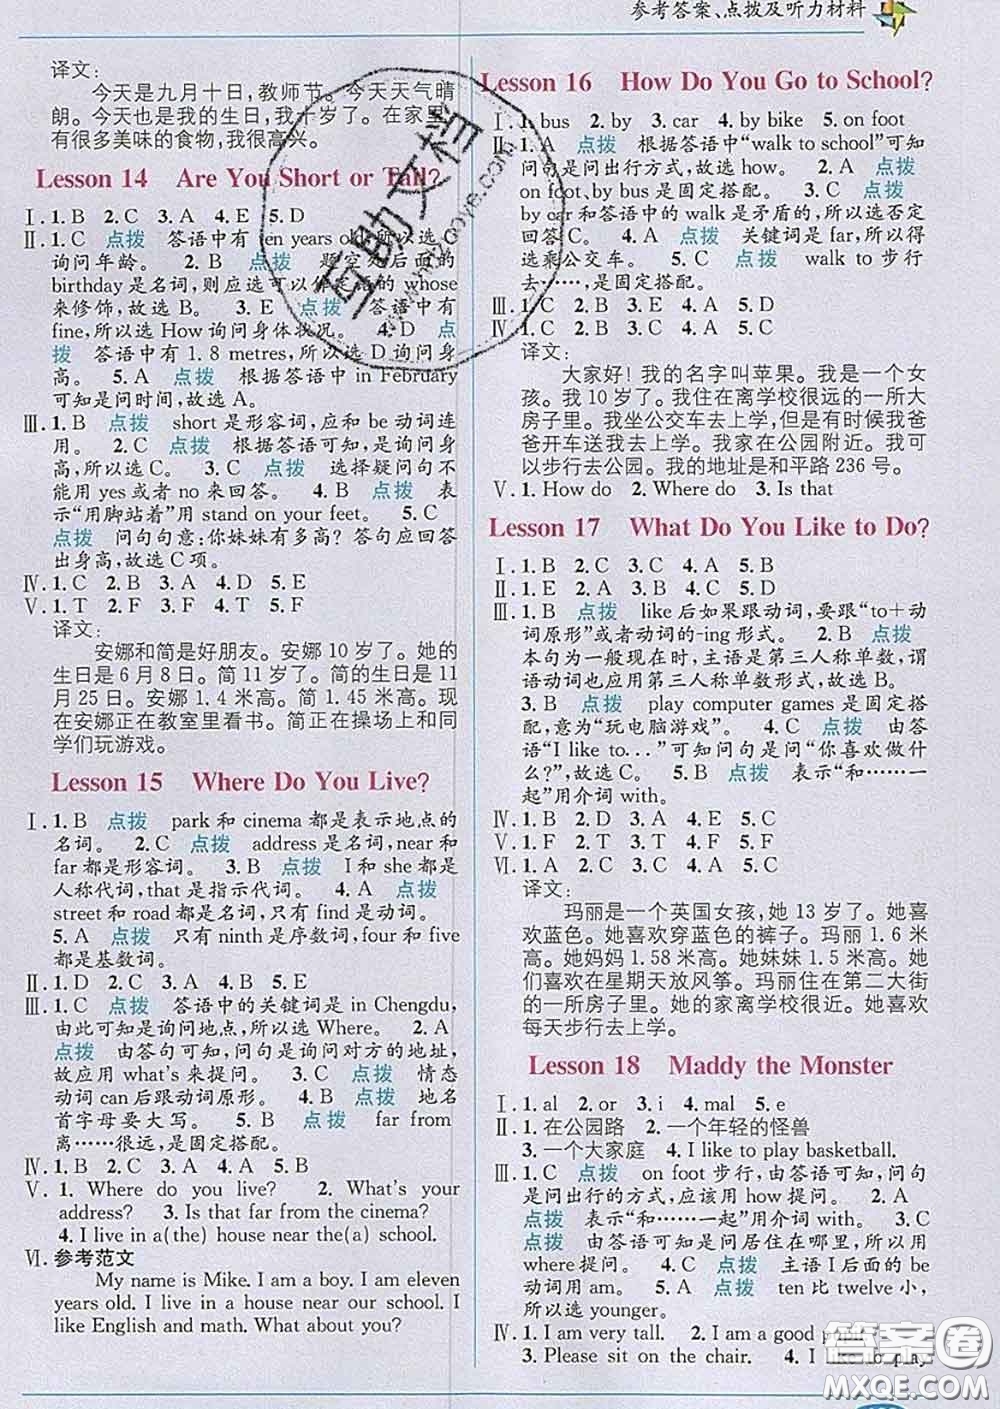 参考答案、点拨及听力材料
译文：
今天是九月十日，教师节。今天天气晴
朗。今天也是我的生日，我十岁了。在家里
有很多美味的食物，我很高兴。
Lesson 14 Are You Short or Tall?
Ⅰ. 1. B 2. C 3. A 4. E 5. D
Ⅱ. 1. C 点拨 答语中有 ten years old，所以选
询问年龄。 2. A 点拨 题空后面的
birthday 是名词，则应选可以作定语的 whose
来修饰，故选 A。 3. E 点拨 答语中有
fine，所以选 How 询问身体状况。 4. D 点
拨 答语中有 1. 8 metres，所以选 D 询问身
高。 5. A 点拨 根据答语中 in February
可知是问时间，故选 A。
Ⅲ. 1. B 点拨 short 是形容词，应和 be 动词连
用。 2. C 点拨 根据答语可知，是询问身
高，所以选 C。 3. C 点拨 选择疑问句不
能用 yes 或者 no 来回答。 4. B 点拨 表
示“用脚站着”用 stand on your feet。 5. C
点拨 问句句意：你妹妹有多高？答句应回答
出身高，故选 C 项。
Ⅳ. 1. C 2. B 3. A 4. D 5. E
Ⅴ. 1. T 2. F 3. T 4. F 5. F
译文：
安娜和简是好朋友。安娜 10 岁了。她的
生日是 6 月 8 日。简 11 岁了。简的生日是 11
月 25 日。安娜 1. 4 米高。简 1. 45 米高。现
在安娜正在教室里看书。简正在操场上和同
学们玩游戏。
Lesson 15 Where Do You Live?
Ⅰ. 1. B 点拨 park 和 cinema 都是表示地点的
名词。 2. C 点拨 address 是名词，near 和
far 都是形容词。 3. B 点拨 I 和 she 都是
人称代词，that 是指示代词。 4. A 点拨
street 和 road 都是名词，只有 find 是动词。
5. A 点拨 只有 ninth 是序数词，four 和 five
都是基数词。
Ⅱ. 1. D 2. C 3. A 4. E 5. B
Ⅲ. 1. C 点拨 答语中的关键词是 in Chengdu，
由此可知是询问地点，所以选 Where。 2. A
点拨 由答句可知，问句是询问对方的地址，
故应用 what's 来提问。 3. C 点拨 情态
动词 can 后跟动词原形。 4. B 点拨 地名
首字母要大写。 5. B 点拨 far from
离……很远，是固定搭配。
Ⅳ. 1. B 2. B 3. B 4. A 5. A
Ⅴ. 1. Where do you live? 2. What's your
address? 3. Is that far from the cinema?
4. I live in a(the) house near the(a) school.
Ⅵ. 参考范文
My name is Mike. I am a boy. I am eleven
years old. I live in a house near our school. I
like English and math. What about you?
Lesson 16 How Do You Go to School?
Ⅰ. 1. bus 2. by 3. car 4. by bike 5. on foot
Ⅱ. 1. A 点拨 根据答语中“walk to school”可知
问句是问出行方式，故选 how。 2. C 点拨
on foot、by bus 是固定搭配。 3. C 点拨
by car 和答语中的 walk 是矛盾的，所以选否定
回答 C。 4. A 点拨 关键词是 far，所以得
选乘公交车。 5. C 点拨 walk to 步行
去……，是固定搭配。
Ⅲ. 1. C 2. B 3. E 4. A 5. D
Ⅳ. 1. C 2. B 3. C 4. A 5. C
译文：
大家好！我的名字叫苹果。我是一个女
孩。我 10 岁了。我住在离学校很远的一所大
房子里。我坐公交车去上学，但是有时候我爸
爸开车送我去上学。我家在公园附近。我可
以步行去公园。我的地址是和平路 236 号。
Ⅴ. 1. How do 2. Where do 3. Is that
Lesson 17 What Do You Like to Do?
Ⅰ. 1. B 2. C 3. C 4. A 5. B
Ⅱ. 1. E 2. A 3. B 4. C 5. D
Ⅲ. 1. B 点拨 like 后如果跟动词，要跟“to＋动
词原形”或者动词的-ing 形式。 2. B 点拨
本句为一般现在时，主语是第三人称单数，谓
语动词也应用第三人称单数形式，故选 B。
3. B 点拨 play computer games 是固定搭
配，意为“玩电脑游戏”。 4. C 点拨 由答
语“I like to...”可知问句是问“你喜欢做什
么？”，故选 C。 5. A 点拨 表示“和……一
起”用介词 with。
Ⅳ. 1. B 2. D 3. A 4. E 5. C
Ⅴ. 1. F 2. T 3. T 4. F 5. F
Ⅵ. 1. C 2. A 3. B 4. A 5. A
译文：
玛丽是一个英国女孩，她 13 岁了。她喜
欢蓝色。她喜欢穿蓝色的裤子。玛丽 1. 6 米
高。她妈妈 1. 58 米高。她妹妹 1. 5 米高。她
们喜欢在星期天放风筝。玛丽住在第二大街
的一所房子里。她的家离学校很近。她喜欢
每天步行去上学。
Lesson 18 Maddy the Monster
Ⅰ. 1. al 2. or 3. i 4. mal 5. e
Ⅱ. 1. 在公园路 2. 一个年轻的怪兽
3. 一个大家庭 4. I like to play basketball.
Ⅲ. 1. C 点拨 on foot 步行，由答语可知，问句
是问出行的方式，应该用 how 提问。 2. A
点拨 表示“和……一起”用介词 with。 3. C
点拨 由答语可知是问居住在哪里，所以用
where 提问。 4. C 点拨 主语 I 后面的 be
动词用 am。 5. A 点拨 ten 比 twelve 小，
所以选 younger。
Ⅳ. 1. I am very tall. 2. I am a good
3. Please sit on the chair. 4. I like to play
互助文档
答案圈
MXQE.COM